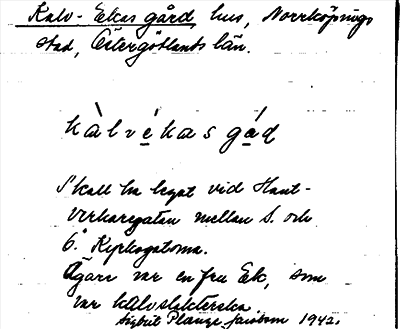 Kalv-Ekas gård, hus, Norrköpings
stad, Östergötlands län.
kàlvékas gǻd
Skall ha legat vid Hant-
verkaregatan mellan S. och
Ö. Kyrkogatorna.
Ägare var en fru Ek, som
var kalvslakterska
Sigbrit Plænge Jacobson 1942.